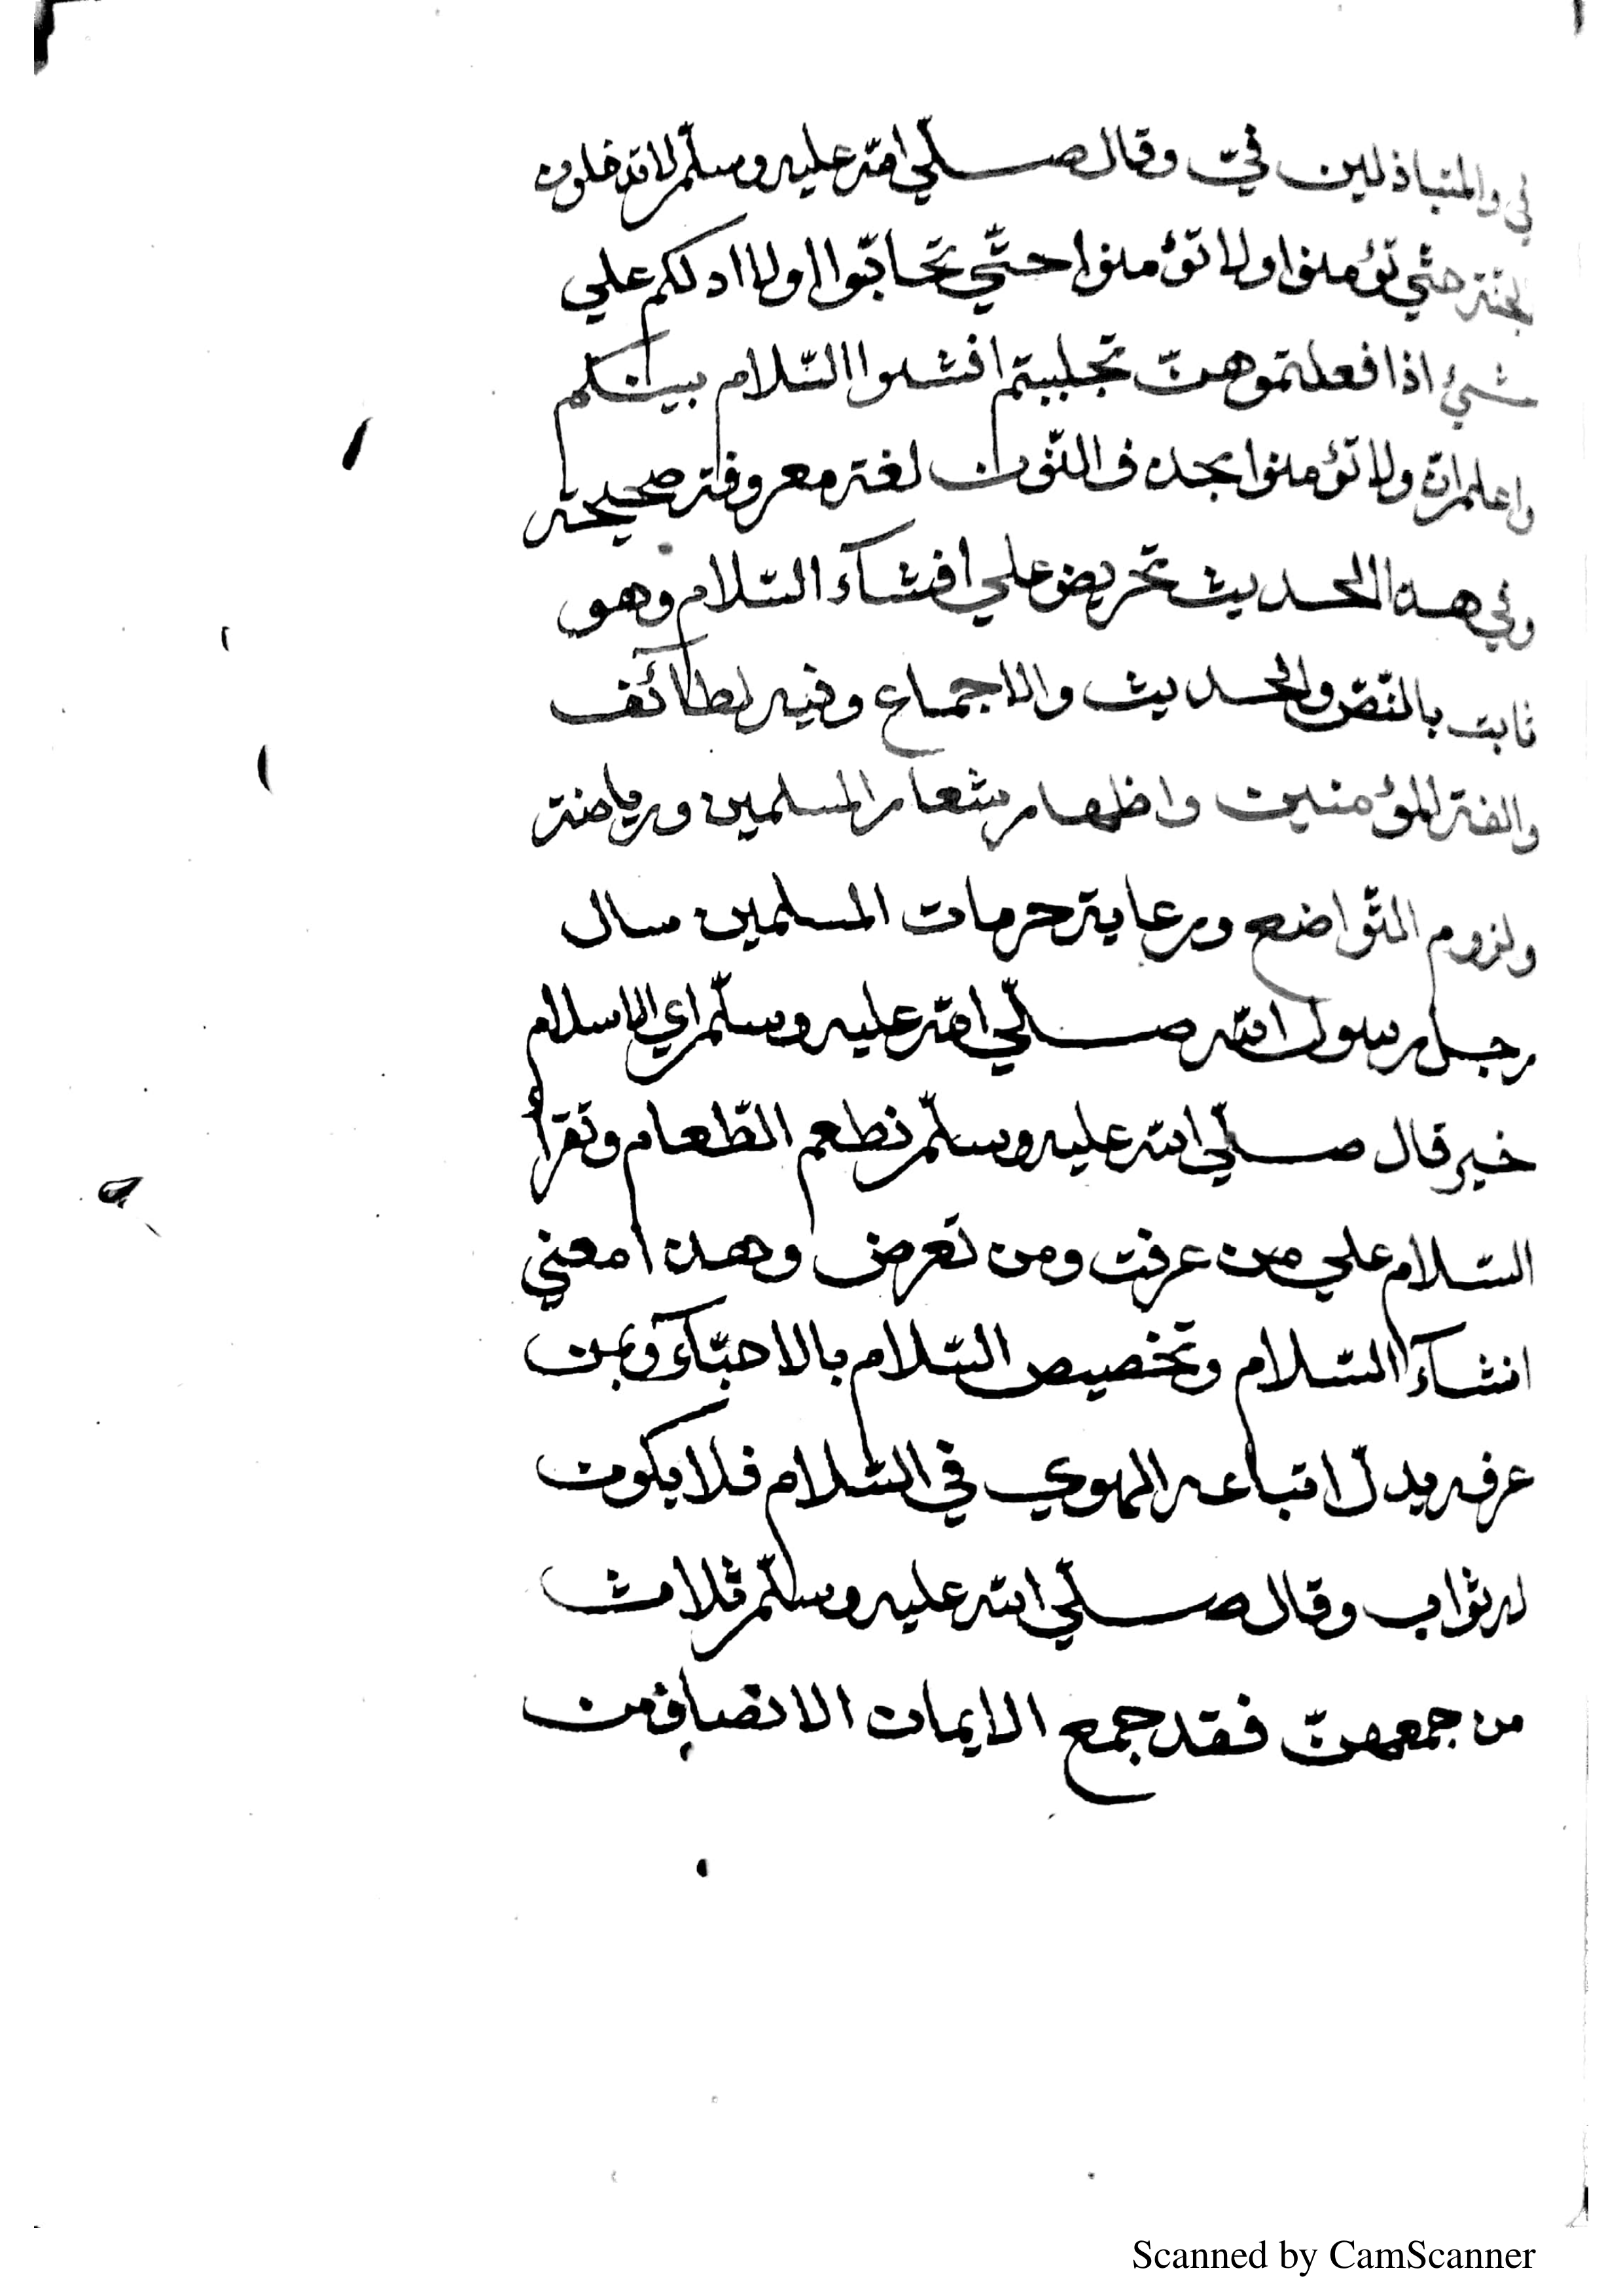 في والمتباذلين فيّ وقال صلّي الله عليه وسلّم لا تدخلون
الجنّة حتّي تؤمنوا ولا تؤمنوا حتّي تحابّوا اولا ادلكم علي
شيئ اذا فعلتموهنّ تحاببتم افشوا السّلام بينكم
واعلم انّ ولا تؤمنوا بحذف النّون لغة معروفة صحيحة
وفي هذا الحديث تحريض علي افشآء السّلام وهو
ثابت بالنّصّ والحديث والاجماع وفيه لطآئف
والفة المؤمنين واظهار شعار المسلمين ورياضة
ولزوم التّواضع ورعاية حرمات المسلمين سال
رجل رسول الله صلّي الله عليه وسلّم اي الاسلام
خير قال صلّي الله عليه وسلّم تطعم الطّعام وتقرأ
السّلام علي من عرفت ومن تعرض وهذا معني
افشآء السّلام وتخصيص السّلام بالاحبّآء وبمن
عرفه يدلّ اتباعه الهوي في السّلام فلا يكون
له ثواب وقال صلّي الله عليه وسلّم ثلاث
من جمعهنّ فقد جمع الايمان الانصاف من
Scanned by CamScanner